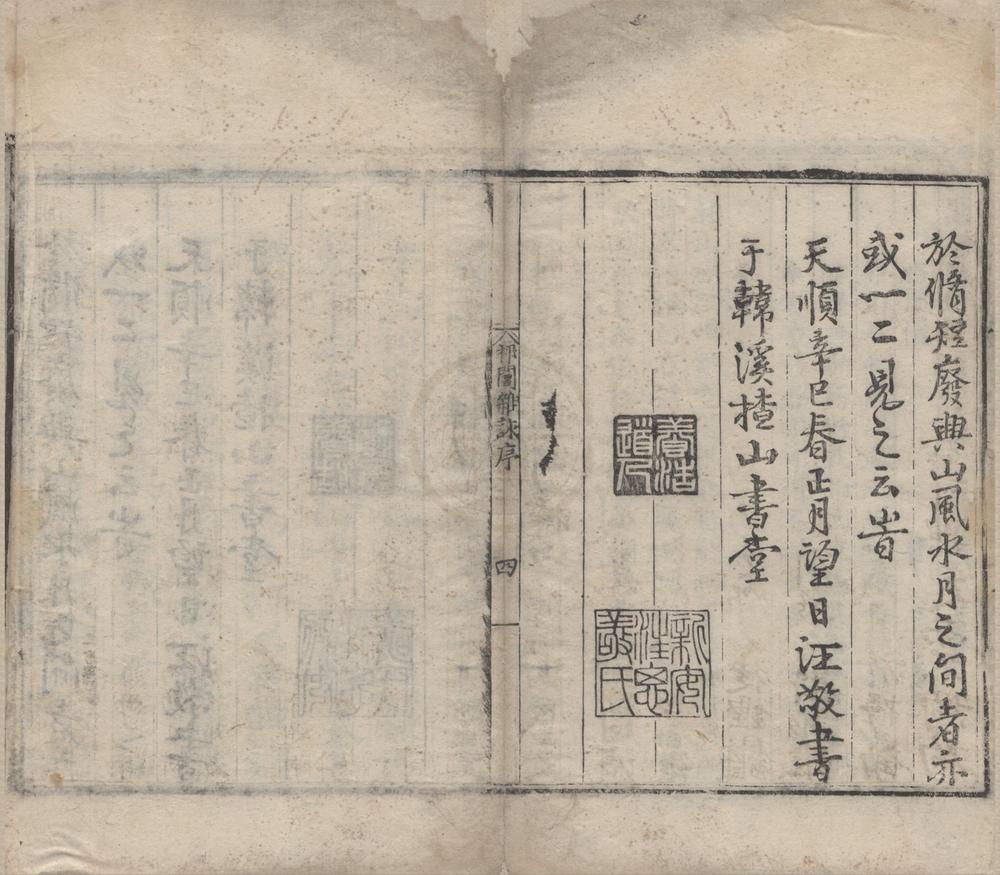 於脩短廢興山風水月之間者亦
或一二見之云旹
天順辛巳春正月望日汪敬書
于韓溪揸山書堂
養浩
新安
汪思
敬氏
六部閒雜詠序
四